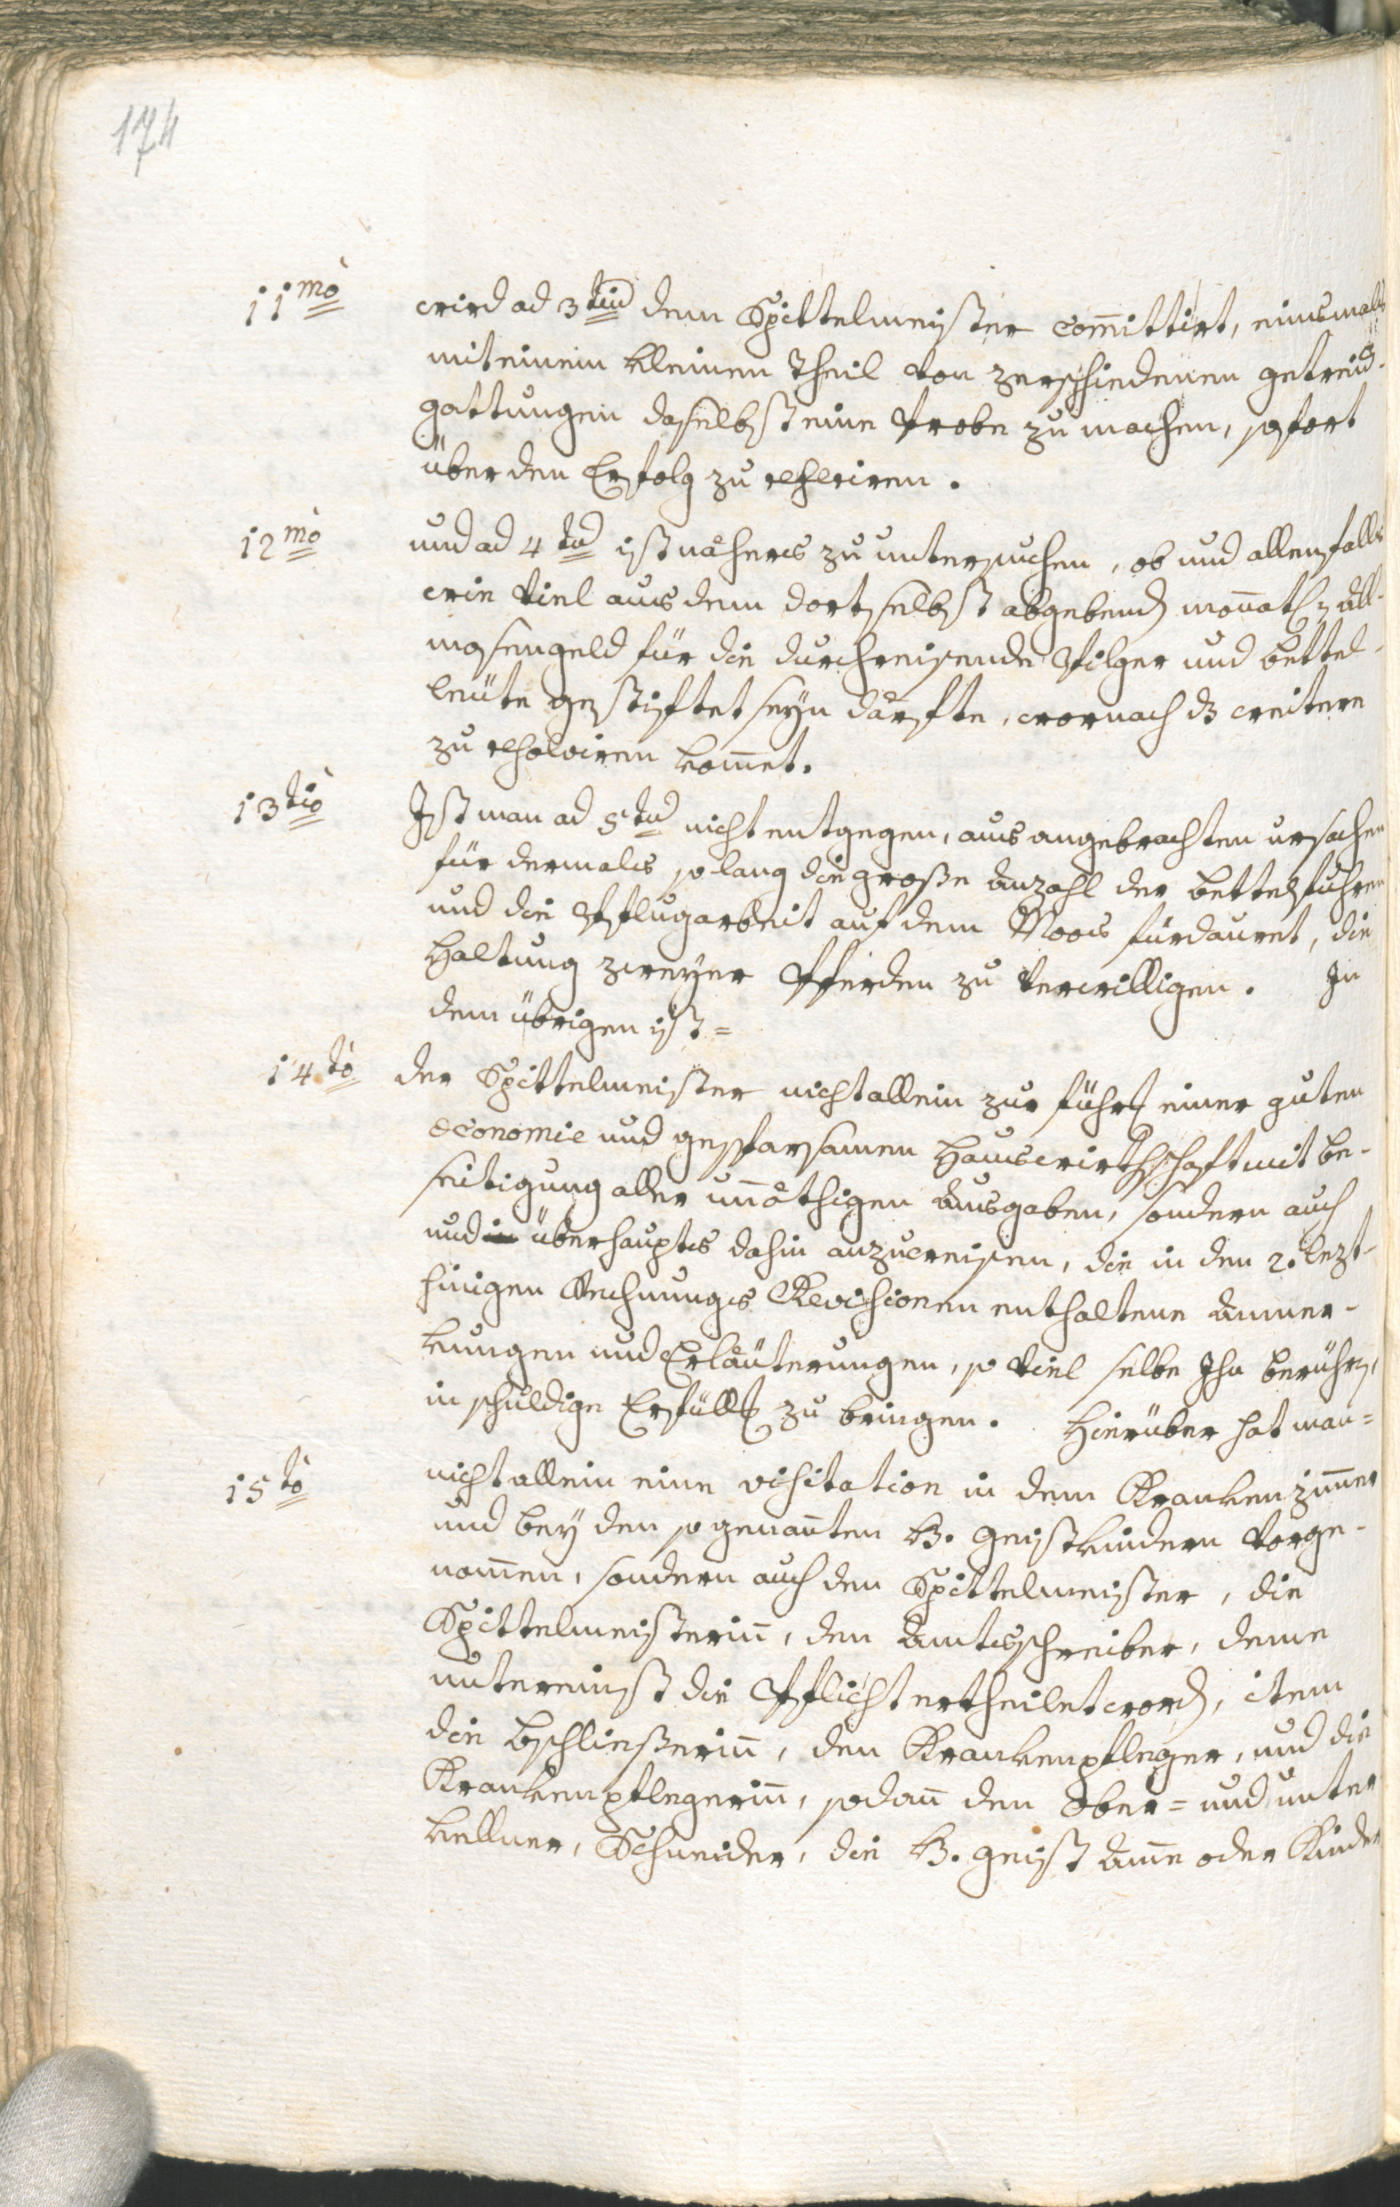 174
11mo wird ad 3tiu dem Spittelmeister committirt, einsmals
mit einem kleinen Theil von zerschiedenen getreid-
gattungen daselbst eine Probe zu machen, sofort
über den Erfolg zu referiren.
12mo und ad 4tu ist näheres zu untersuchen, ob und allenfalls
wie viel aus dem dortselbst abgebend monatl. All-
mosengeld für die durchreisende Pilger und bettel-
leüte gestiftet seyn därfte, wornach dz weitere
zu resolviren kommet.
13tio Ist man ad 5tu nicht entgegen, aus angebrachten ursachen
für dermals so lang die große Anzahl der bettelfuhren
und die Pflugarbeit auf dem Moos fürdauret, die
Haltung zweyer Pferden zu verwilligen. In
dem übrigen ist=
14to der Spittelmeister nicht allein zur führg einer guten
economie und gesparsamen Hauswirthschaft mit be-
seitigung aller unnöthigen Ausgaben, sondern auch
und überhaupts dahin anzuweisen, die in den 2. lezt-
hinigen Rechnungs Revisionen enthaltene Anmer-
kungen und Erläuterungen, so viel selbe Ihn berühren,
in schuldige Erfüllg zu bringen. Hierüber hat man=
15to nicht allein eine visitation in dem Krankenzimmer
und bey den so genannten H. Geistkindern vorge-
nommen, sondern auch den Spittelmeister, die
Spittelmeisterinn, den Amtsschreiber, deme
untereinst die Pflicht ertheilet word, item
die bschließerinn, den Krankenpfleger, und die
Krankenpflegerinn, sodann den Ober= und unter
kellner, Schneider, die H. Geist Amme oder Kinder